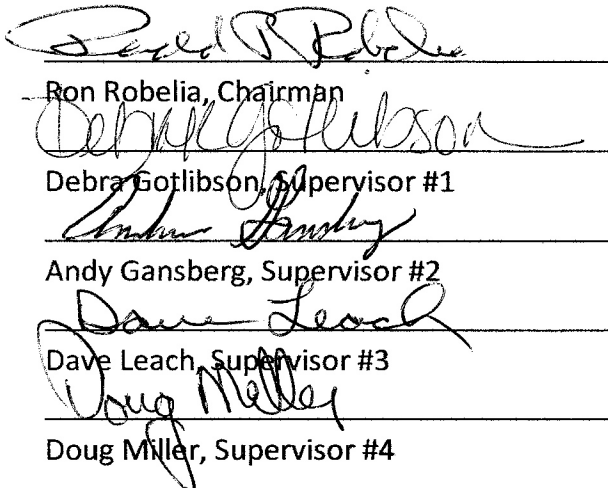 Ronald R Robelia
Ron Robelia, Chairman
Debra Gotlibson
Debra Gotlibson, Supervisor #1
Andrew Gansberg
Andy Gansberg, Supervisor #2
Dave Leach
Dave Leach, Supervisor #3
Doug Miller
Doug Miller, Supervisor #4